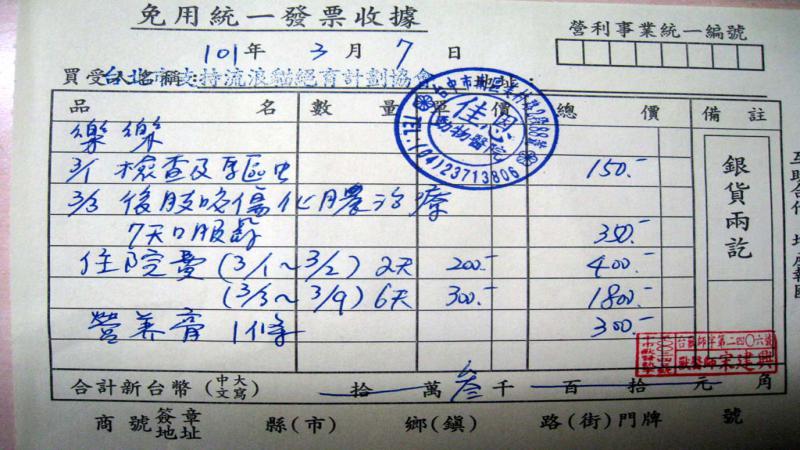 免用統一發票收據
營利事業統一編號
101年 3月 7日
買受人名稱：台北市支持流浪貓絕育計劃協會 地址：
品名 數量 單價 總價 備註
樂樂
3/1 檢查及驅虫 150.-
3/3 後肢咬傷化膿治療
7天口服藥 350.-
住院費 (3/1~3/2) 2天 200.- 400.-
(3/3~3/9) 6天 300.- 1800.-
營养膏 1條 300.-
銀貨兩訖
佳恩
動物醫院
TEL:(04)23713806
台獸師字第二四〇六號
獸醫師宋建興
合計新台幣 (中文大寫) 拾 萬 叁 千 百 拾 元 角
商號簽章地址 縣(市) 鄉(鎮) 路(街)門牌 號